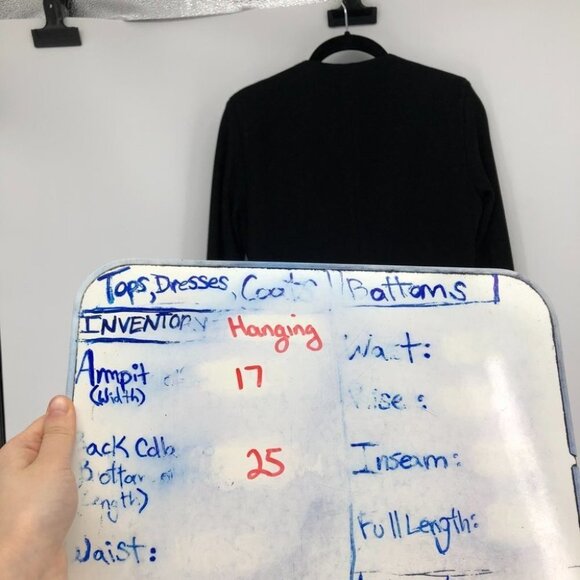 Tops, Dresses, Coats
Bottoms
INVENTORY
Hanging
Armpit
(Width)
17
Back Colla
Bottom
Length)
25
Waist:
Waist:
Rise:
Inseam:
Full Length: